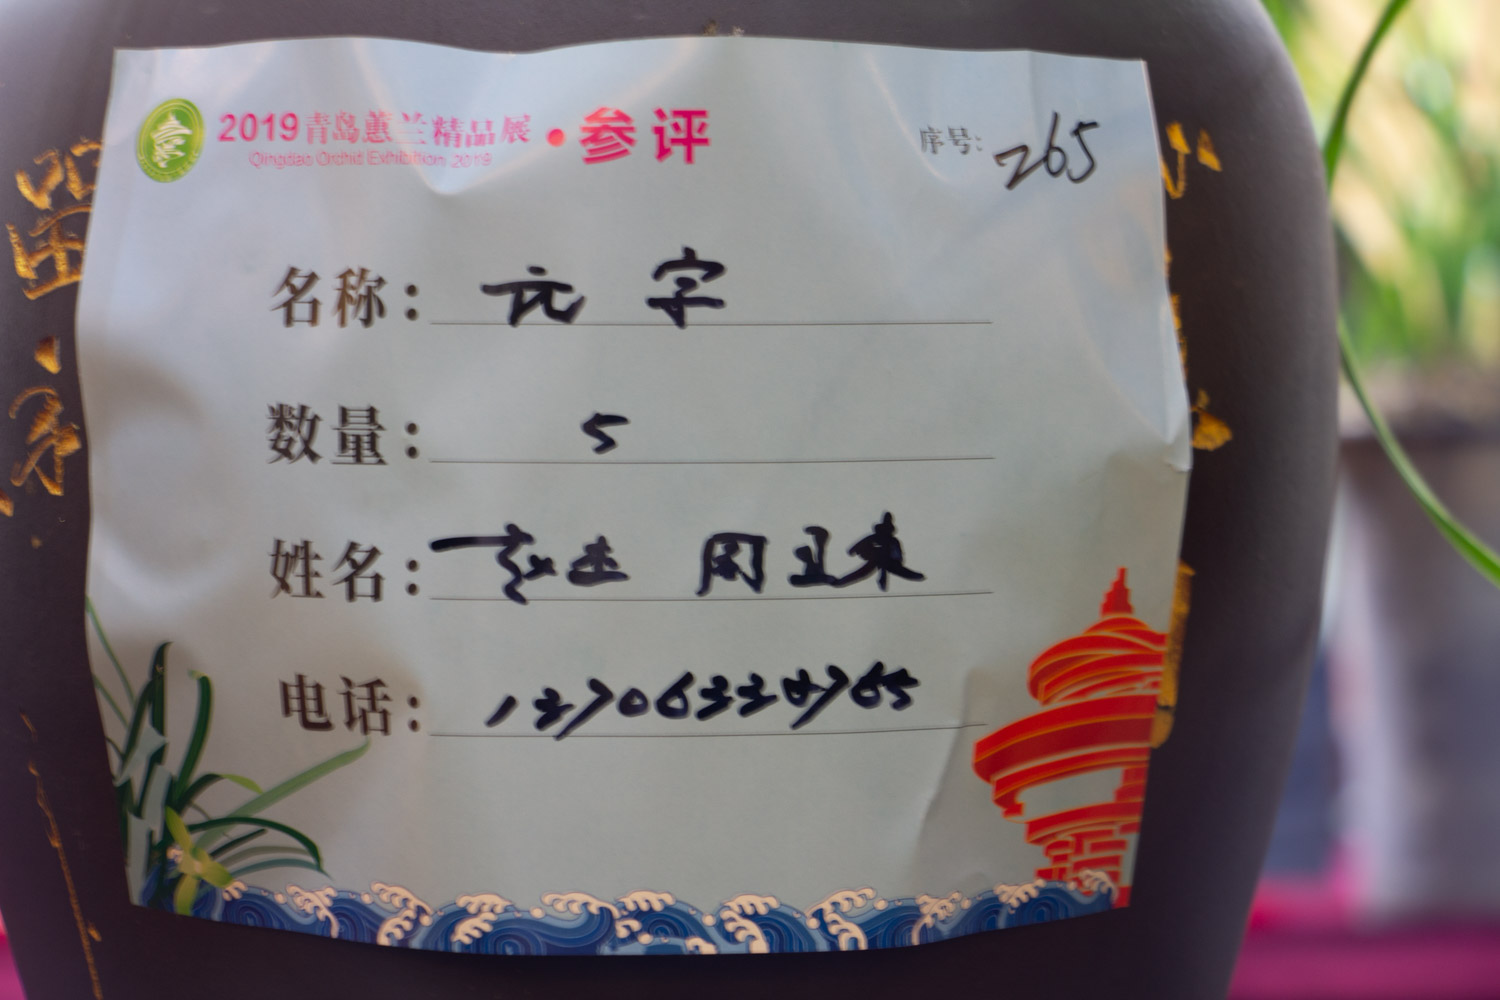 2019青岛蕙兰精品展·参评
Qingdao Orchid Exhibition 2019
序号: 265
名称: 元字
数量: 5
姓名: 周
电话: 13706